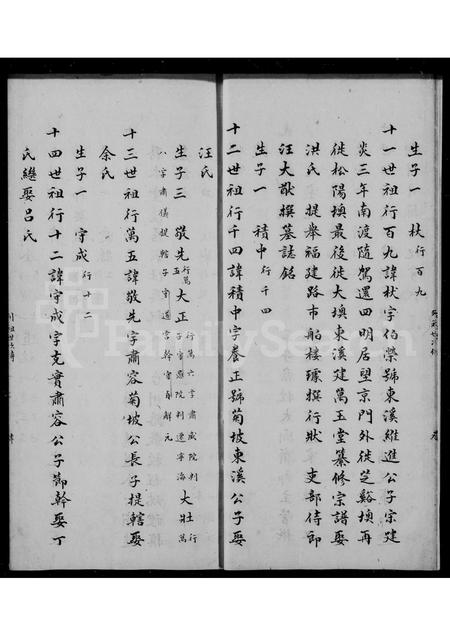 生子一 杕行百九
十一世祖行百九諱杕字伯榮號東溪維進公子宗建
炎三年南渡隨駕還四明居望京門外徙芝谿墺再
徙松陽墺最後徙大墺東溪建萬玉堂纂修宗譜娶
洪氏 提舉福建路市舶樓璩撰行狀 吏部侍郎
汪大猷撰墓誌銘
生子一 積中行千四
十二世祖行千四諱積中字養正號菊坡東溪公子娶
汪氏
生子三 敬先行萬五 大正行萬六字肅咸院判子宙遊院判達寧海 大壯行萬
八字肅儀提轄子宙通字幹宙解元
十三世祖行萬五諱敬先字肅容菊坡公長子提轄娶
余氏
生子一 守成行十二
十四世祖行十二諱守成字克實肅容公子節幹娶丁
氏繼娶呂氏
FamilySearch